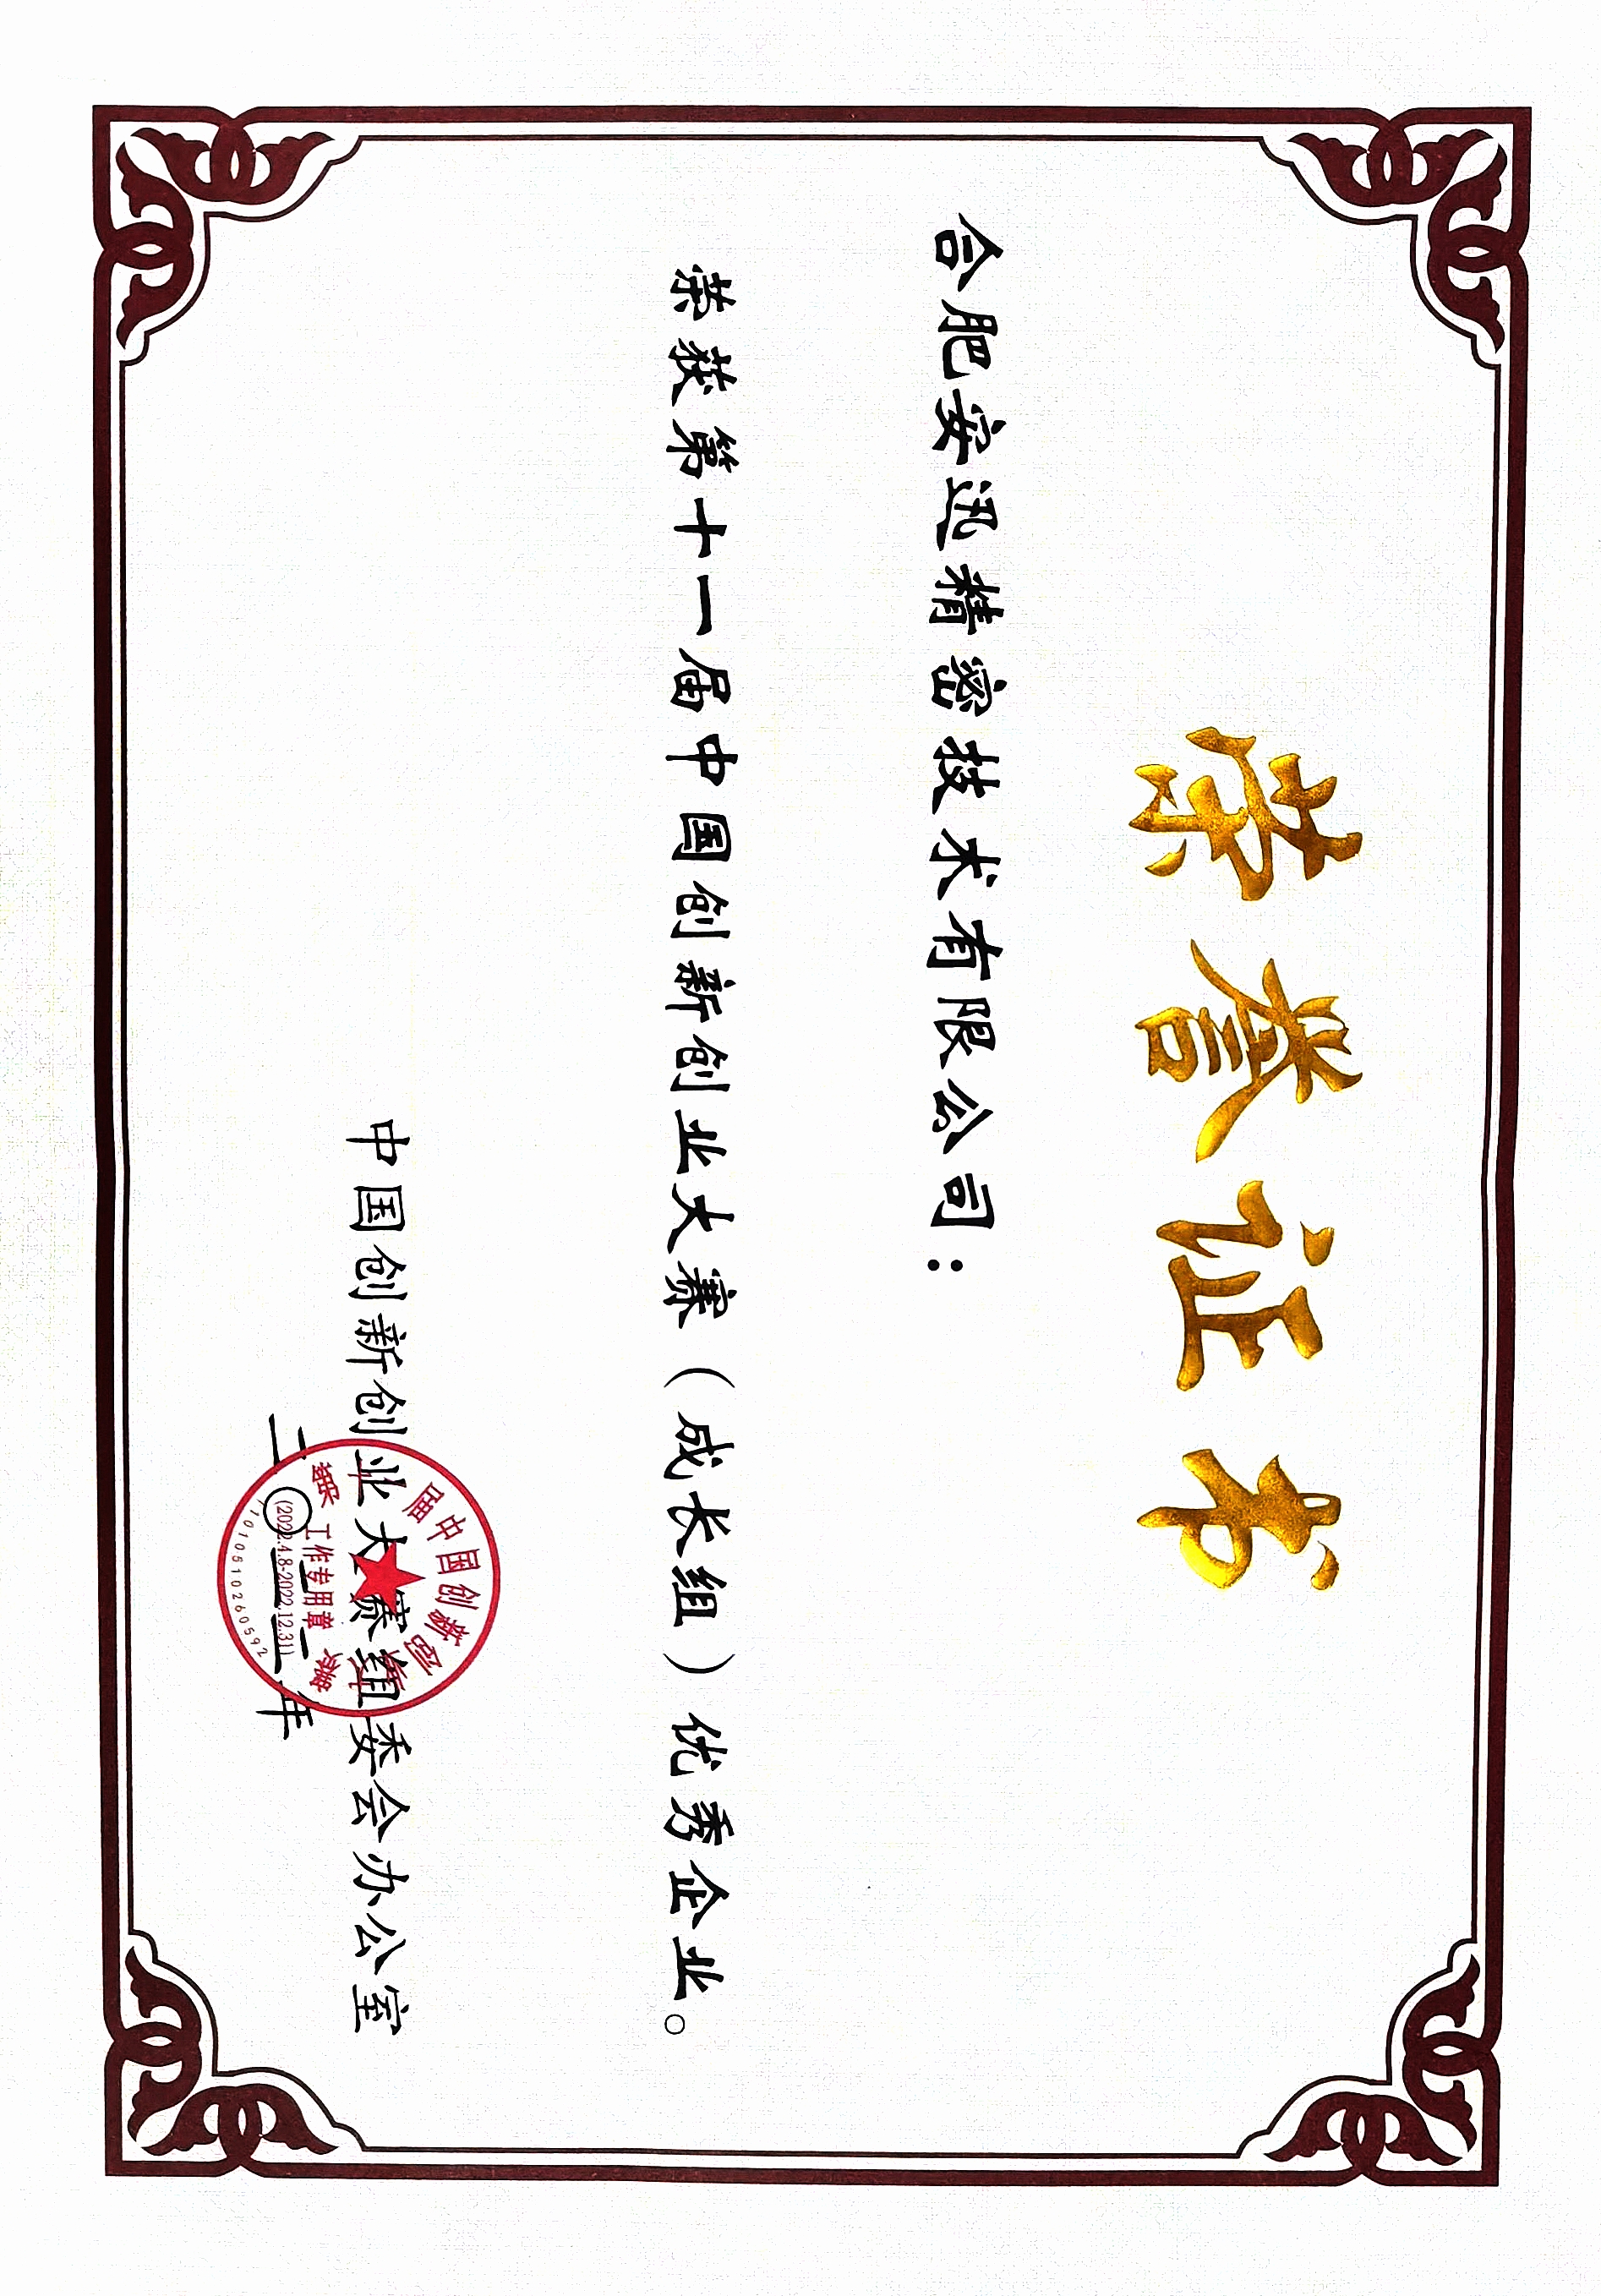 荣誉证书
合肥安迅精密技术有限公司：
荣获第十一届中国创新创业大赛（成长组）优秀企业。
中国创新创业大赛组委会办公室
二〇二二年
届中国创新创
工作专用章
(2022.4.8-2022.12.31)
1101051026059２